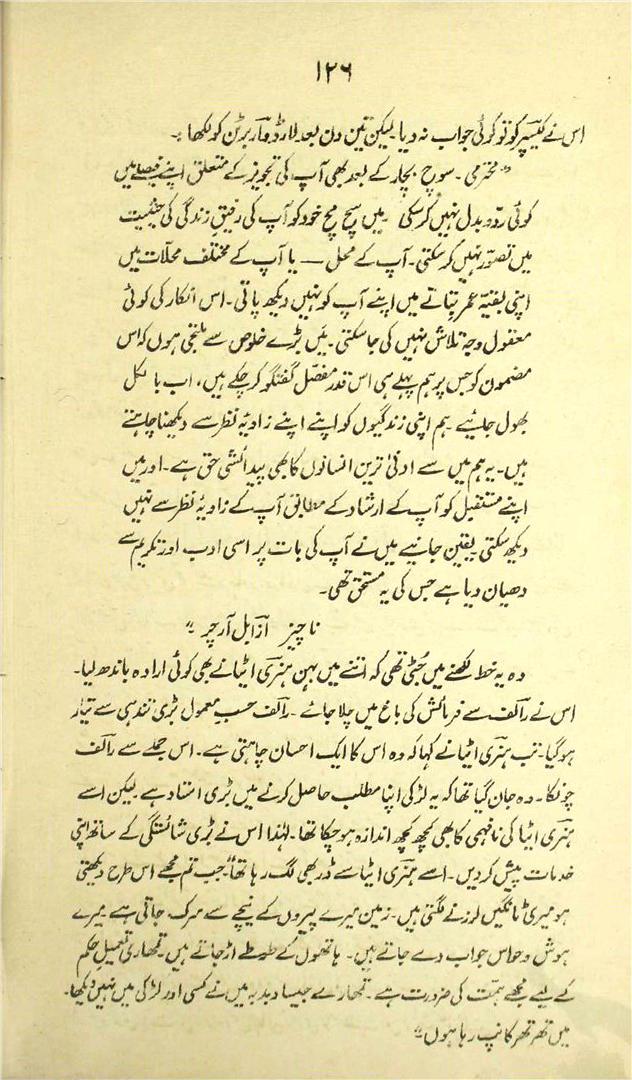 ۱۲۶
اس نے کیسپر کو تو کوئی جواب نہ دیا لیکن تین دن بعد لارڈ واربرٹن کو لکھا :۔
”محترمی ۔ سوچ بچار کے بعد بھی آپ کی تجویز کے متعلق اپنے فیصلے میں
کوئی ردّ و بدل نہیں کرسکی ۔ میں سچ مچ خود کو آپ کی رفیقِ زندگی کی حیثیت
میں تصوّر نہیں کرسکتی۔ آپ کے محل — یا آپ کے مختلف محلّات میں
اپنی بقیّہ عمر بِتاتے میں اپنے آپ کو نہیں دیکھ پاتی ۔ اس انکار کی کوئی
معقول وجہ تلاش نہیں کی جاسکتی ۔ میں بڑے خلوص سے ملتجی ہوں کہ اس
مضمون کو جس پر ہم پہلے ہی اس قدر مفصّل گفتگو کرچکے ہیں، اب بالکل
بھول جائیے ۔ ہم اپنی زندگیوں کو اپنے اپنے زاویۂ نظر سے دیکھنا چاہتے
ہیں ۔ یہ ہم میں سے ادنیٰ ترین انسانوں کا بھی پیدائشی حق ہے ۔ اور میں
اپنے مستقبل کو آپ کے ارشاد کے مطابق آپ کے زاویۂ نظر سے نہیں
دیکھ سکتی یقین جانیے میں نے آپ کی بات پر اسی ادب اور تکریم سے
دھیان دیا ہے جس کی یہ مستحق تھی ۔
ناچیز ازابل آرچر “
وہ یہ خط لکھنے میں جُٹی تھی کہ اتنے میں بہن ہنری اٹیا نے بھی کوئی ارادہ باندھ لیا۔
اس نے رالف سے فرمائش کی باغ میں چلا جائے ۔ رالف حسبِ معمول بڑی تندہی سے تیار
ہوگیا۔ تب ہنری اٹیا نے کہا کہ وہ اس کا ایک احسان چاہتی ہے ۔ اس جملے سے رالف
چونکا ۔ وہ جان گیا تھا کہ یہ لڑکی اپنا مطلب حاصل کرنے میں بڑی استاد ہے لیکن اسے
ہنری اٹیا کی نافہمی کا بھی کچھ کچھ اندازہ ہوچکا تھا ۔ لہٰذا اس نے بڑی شائستگی کے ساتھ اپنی
خدمات پیش کردیں ۔ اسے ہنری اٹیا سے ڈر بھی لگ رہا تھا ”جب تم مجھے اس طرح دیکھتی
ہو میری ٹانگیں لرزنے لگتی ہیں ۔ زمین میرے پیروں کے نیچے سے سرک جاتی ہے ۔ میرے
ہوش و حواس جواب دے جاتے ہیں ۔ ہاتھوں کے طوطے اڑ جاتے ہیں ۔ تمھاری تعمیلِ حکم
کے لیے مجھے ہمّت کی ضرورت ہے ۔ تمھارے جیسا دبدبہ میں نے کسی اور لڑکی میں نہیں دیکھا۔
میں تھر تھر کانپ رہا ہوں “